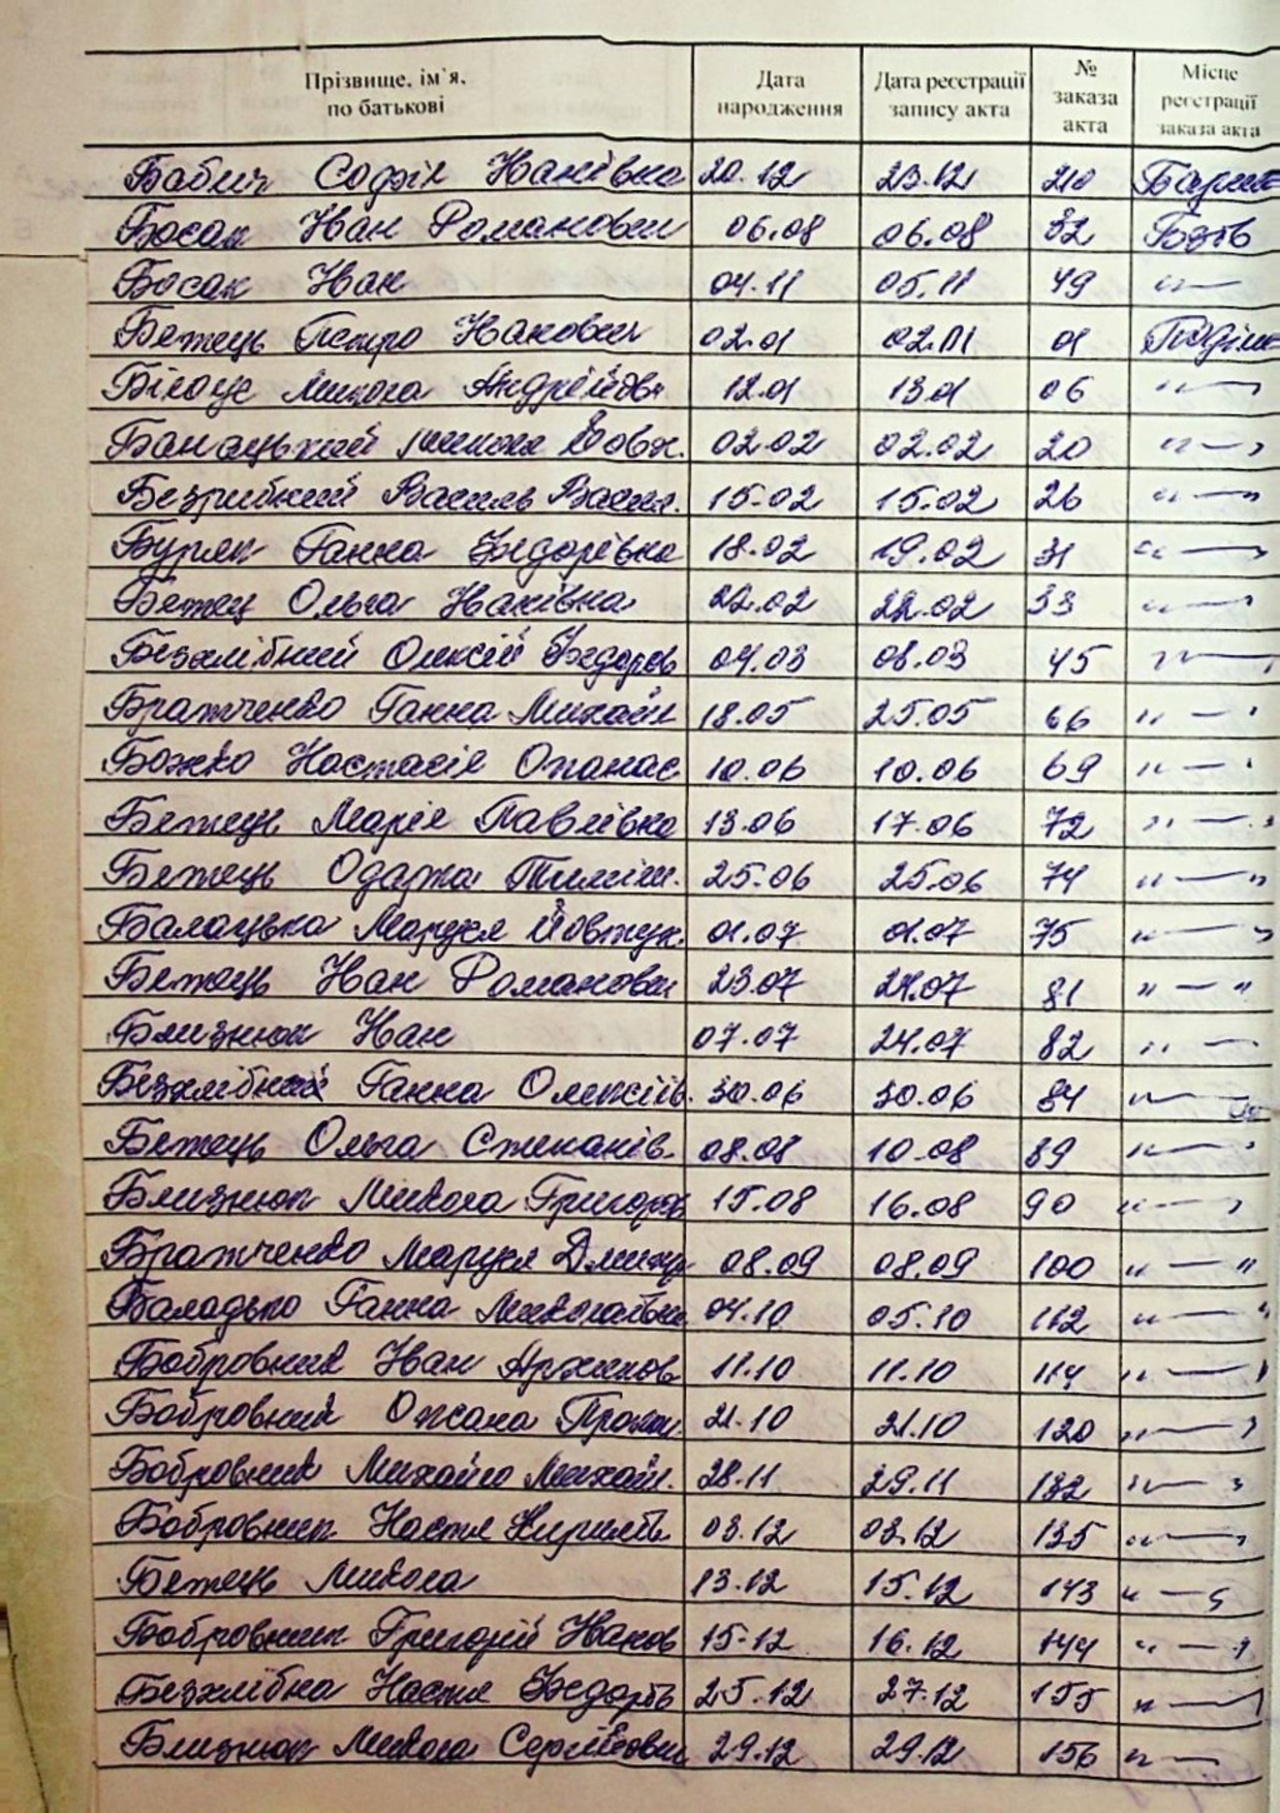 Прізвище, ім'я, по батькові Дата народження Дата реєстрації запису акта № заказа акта Місце реєстрації заказа акта
Бабич Софія Іванівна 20.12 23.12 210
Босак Іван Романович 06.08 06.08 32
Босак Іван 04.11 05.11 49 "—
Бетець Петро Іванович 02.01 02.01 01
Білоус Микола Андрійов. 12.01 13.01 06 "—"
Микола 02.02 02.02 20 "—"
Василь Васил. 15.02 15.02 26 "—"
Буряк Ганна Федорівна 18.02 19.02 31 "—"
Бетец Ольга Іванівна 22.02 22.02 33 "—"
Безхлібний Олексій Федоров 04.03 08.03 45 "—"
Братченко Ганна Михайл 18.05 25.05 66 "—"
Божко Настасія Опанас 10.06 10.06 69 "—"
Бетець Марія Павлівна 13.06 17.06 72 "—"
Бетець Одарка Тиміш. 25.06 25.06 74 "—"
Балацька Маруся Йовтух. 01.07 01.07 75 "—"
Бетець Іван Романович 23.07 24.07 81 "—"
Близнюк Іван 07.07 24.07 82 "—
Безхлібная Ганна Олексіїв. 30.06 30.06 84 "—
Бетець Ольга Степанів. 08.08 10.08 89 "—"
Близнюк Микола Григоров 15.08 16.08 90 "—"
Братченко Маруся Дмитр 08.09 08.09 100 "—"
Ганна Миколаївна 04.10 05.10 112 "—"
Бобровник Іван Архипов 11.10 11.10 114 "—"
Бобровник Оксана Прокоп. 21.10 21.10 120 "—"
Бобровник Михайло Михайл. 28.11 29.11 132 "—"
Бобровник Настя Кирилів. 03.12 03.12 135 "—"
Бетець Микола 13.12 15.12 143 "—"
Бобровник Григорій Іванов 15.12 16.12 144 "—"
Безхлібна Настя Федорів 25.12 27.12 155 "—"
Близнюк Микола Сергійович 29.12 29.12 156 "—